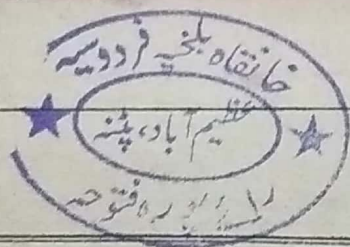 خانقاہ بلخیہ فردوسیہ
عظیم آباد، پٹنہ
فتوحہ